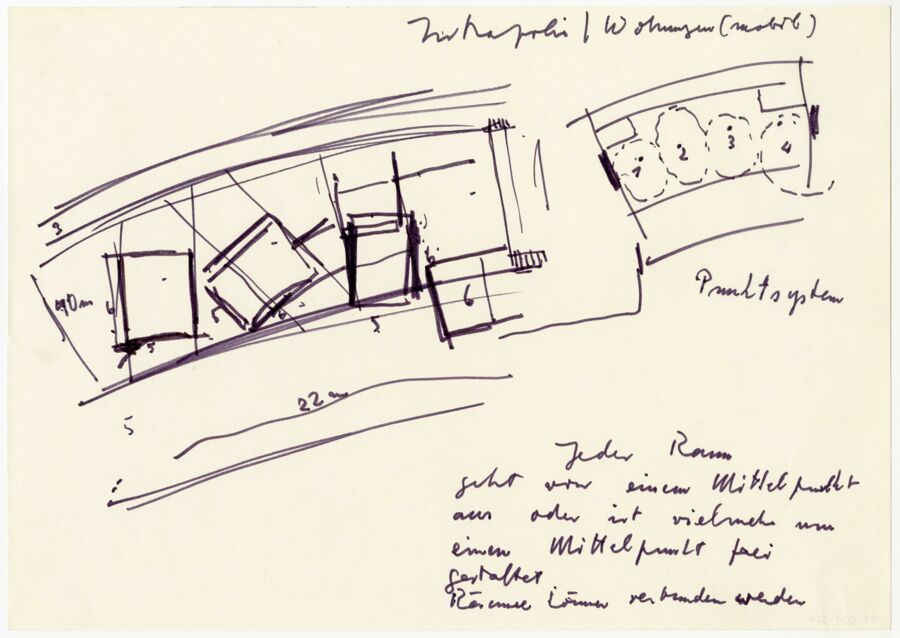 Intrapolis / Wohnungen (mobil)
1
2
3
4
3
90 m
6
5
5
6
5
6
6
22 m
5
Punktsystem
Jeder Raum
geht von einem Mittelpunkt
aus oder ist vielmehr um
einen Mittelpunkt frei
gestaltet
Räume können verbunden werden